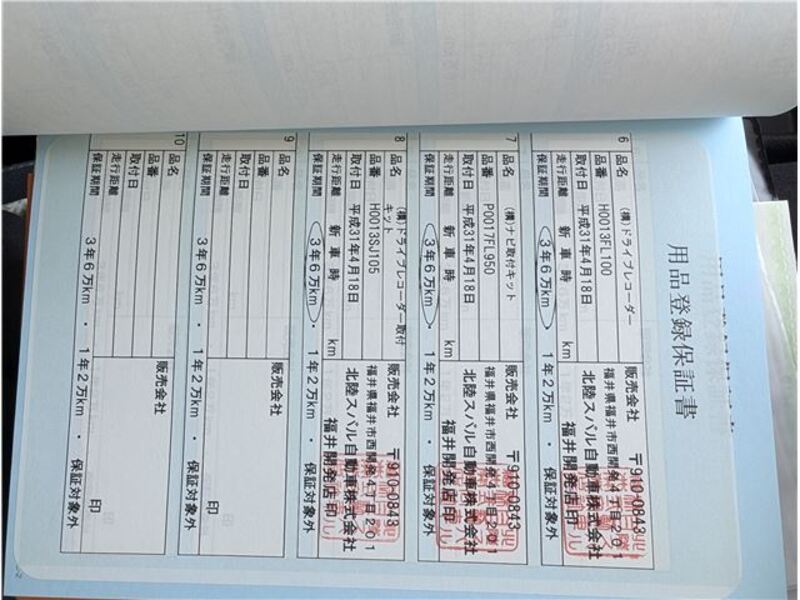 用品登録保証書
6
品名 (構)ドライブレコーダー
品番 H0013FL100
取付日 平成31年4月18日
走行距離 新車時 km
保証期間 3年6万km・1年2万km・保証対象外
販売会社 〒910-0843
福井県福井市西開発4丁目201
北陸スバル自動車株式会社
福井開発店 印
7
品名 (構)ナビ取付キット
品番 P0017FL950
取付日 平成31年4月18日
走行距離 新車時 km
保証期間 3年6万km・1年2万km・保証対象外
販売会社 〒910-0843
福井県福井市西開発4丁目201
北陸スバル自動車株式会社
福井開発店 印
8
品名 (構)ドライブレコーダー取付
キット
品番 H0013SJ105
取付日 平成31年4月18日
走行距離 新車時 km
保証期間 3年6万km・1年2万km・保証対象外
販売会社 〒910-0843
福井県福井市西開発4丁目201
北陸スバル自動車株式会社
福井開発店 印
9
品名
品番
取付日
走行距離
保証期間 3年6万km・1年2万km・保証対象外
販売会社
印
10
品名
品番
取付日
走行距離
保証期間 3年6万km・1年2万km・保証対象外
販売会社
印